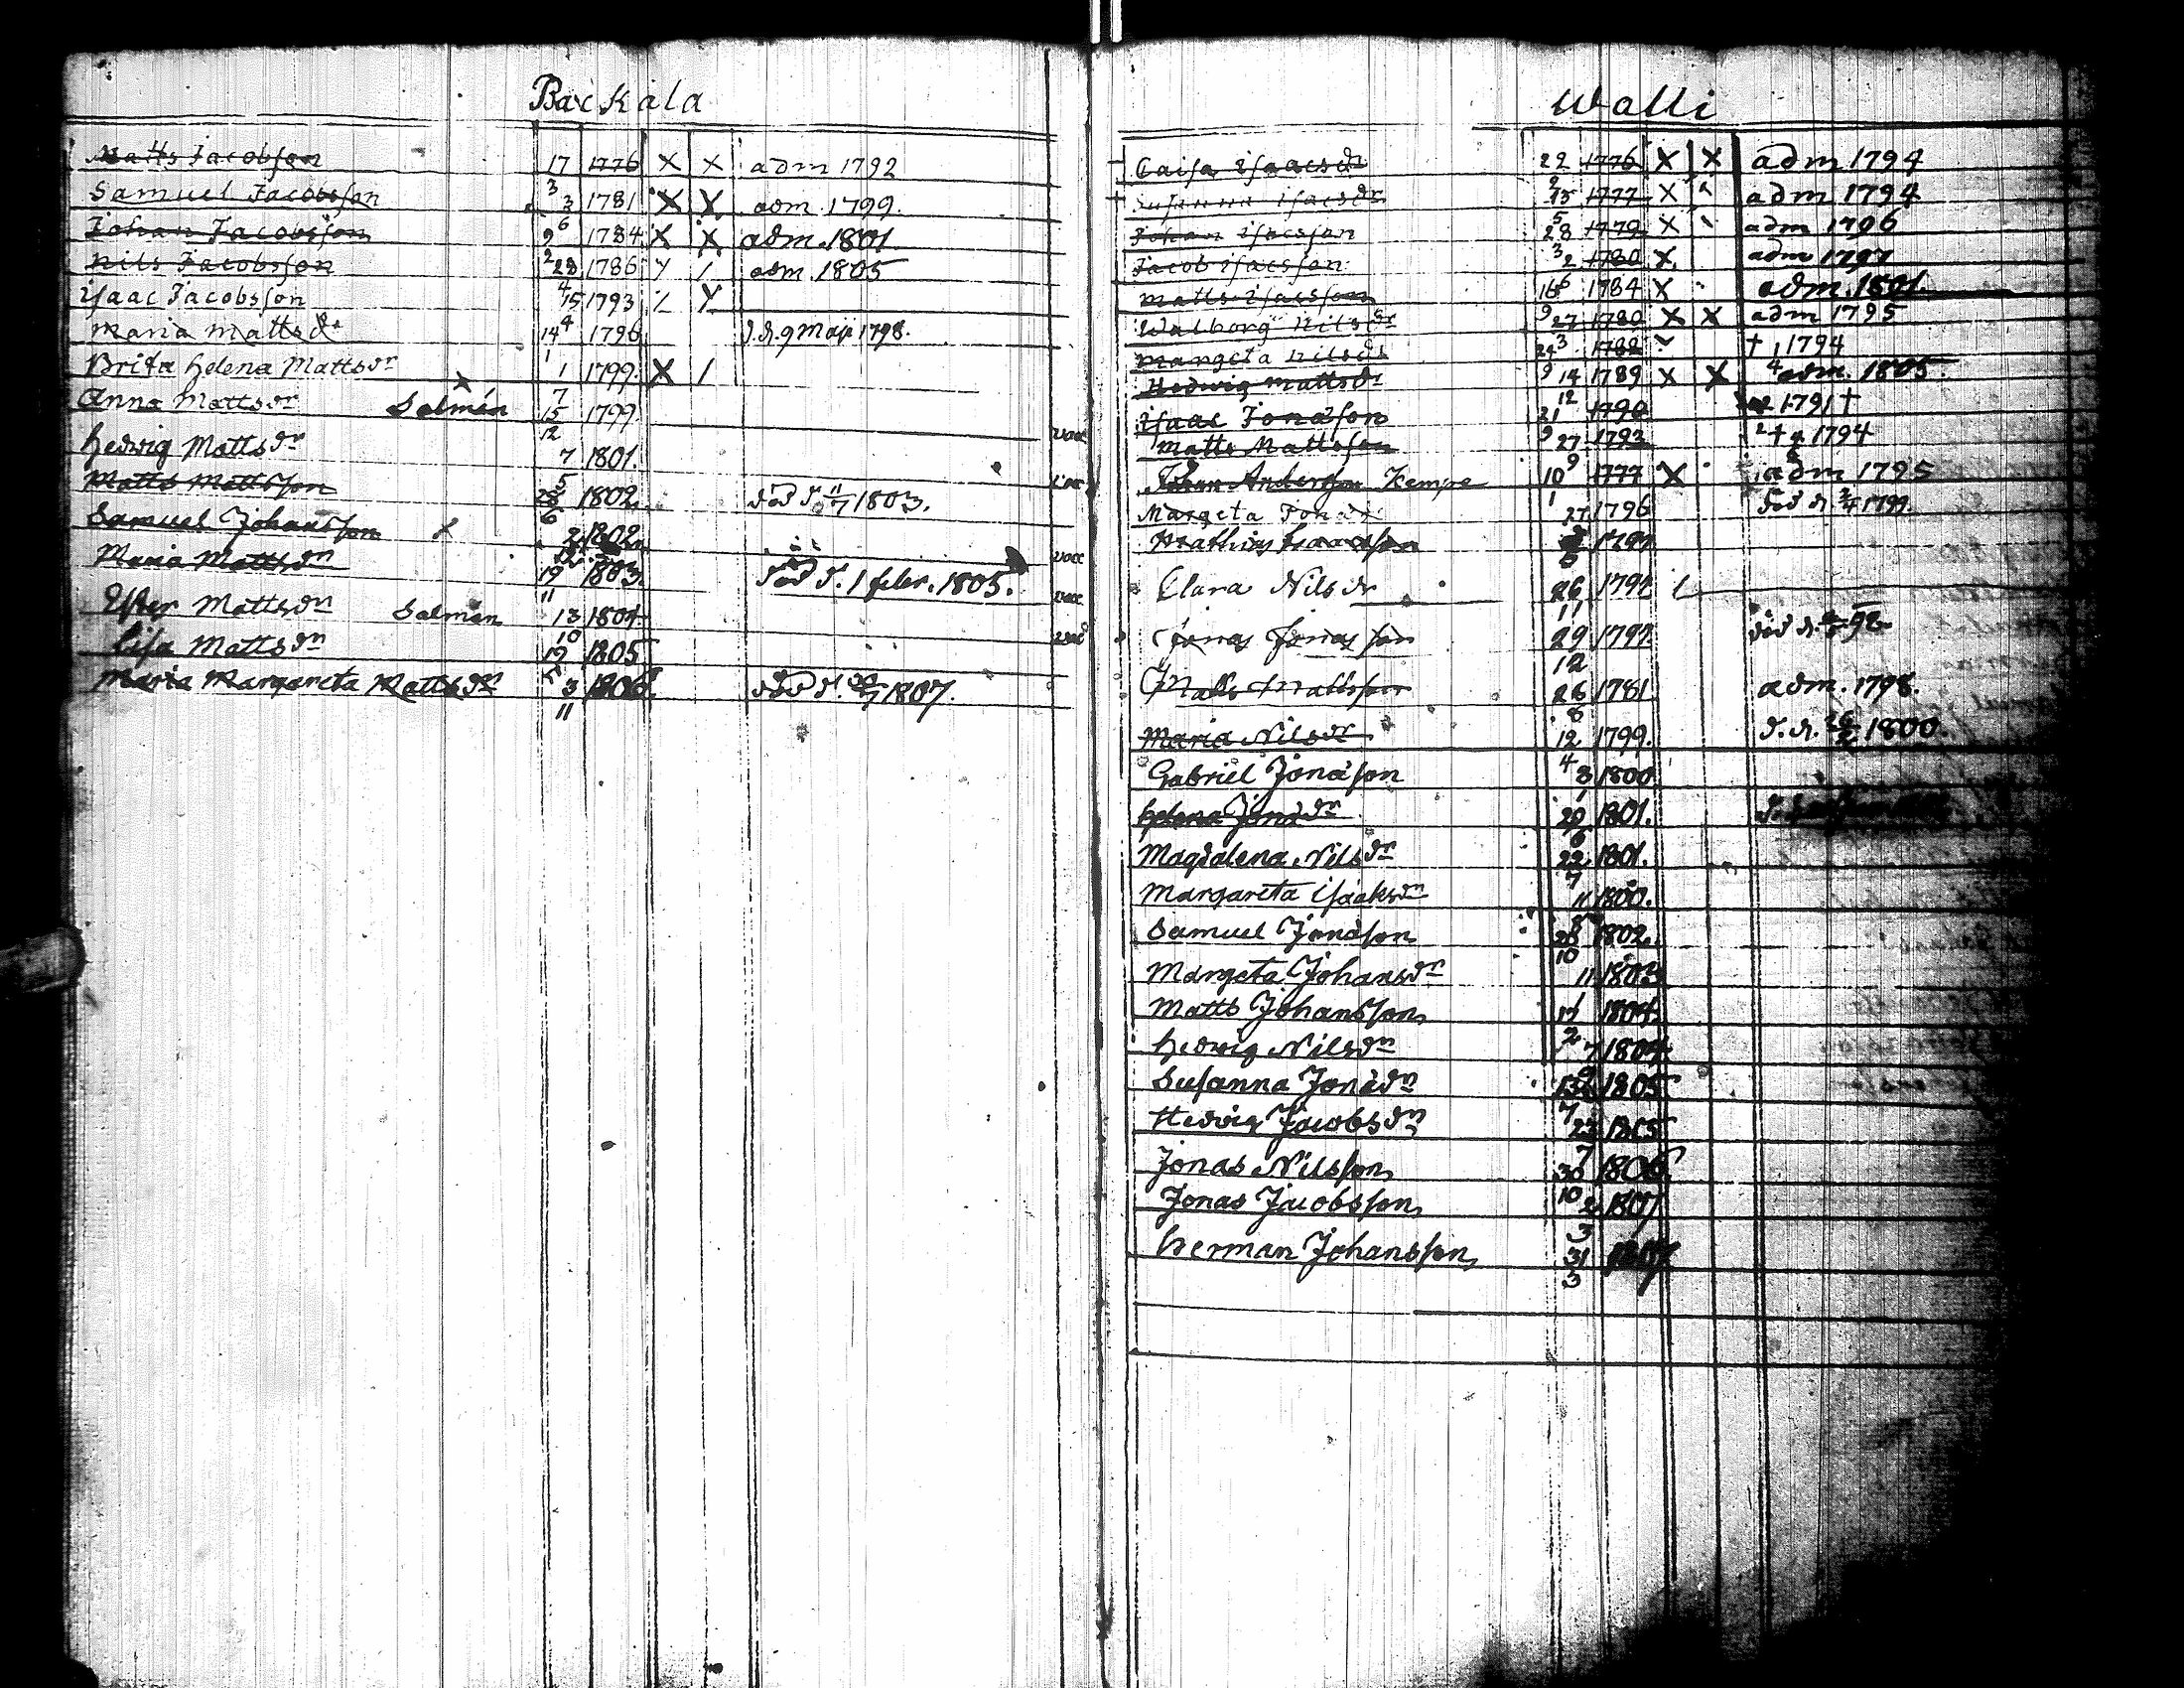 Backala
Matts Jacobsson 17 1776 X X adm 1792
Samuel Jacobsson 3 3 1781 X X adm. 1799.
Johan Jacobsson 6 9 1784 X X adm. 1801
Nils Jacobsson 2 28 1786 / adm. 1805
isaac Jacobsson 4 15 1793
Maria Matts dr 14 4 1796 d. d. 9 Maji 1798.
Brita Helena Matts dr 1 1 1799. X /
Anna Matts dr Salmén 7 15 1799.
12
Hedwig Matts dr 7 1801.
5
Matts Mattsson 28 1802. död d. 11/7 1803.
6
Samuel Johansson 2 1802
Maria Matts dr 19 1803 död d. 1 febr. 1805.
11
Ester Matts dr Salmén 13 1804
10
Lisa Matts dr 19 1805
Maria Margareta Matts dr 3 1806. 1807.
11
Walli
Caisa isaacs dr 22 1776 X X adm 1794
Susanna isacs dr 1777 X adm 1794
Johan isacsson 28 1779 X adm 1796
Jacob isacsson 3 2 1780 X adm 1797
Matts isacsson 16 1784 X adm. 1801.
Walborg Nils dr 9 27 1780 X X adm 1795
Margeta Nils dr 24 3 † 1794
Hedwig Matts dr 9 14 1789 X X adm. 1805.
isaac Jonasson 12 21 1790 1791 †
Matts Mattsson 9 27 1792 1794
Johan Andersson Kempe 10 9 1777 X adm 1795
Margeta Jonæ dr 1 27 1796 död d. 1799.
Mathias
Clara Nils dr 26 1797
11
Jonas Jonasson 29 1797
12
Matts Mattsson 26 1781 adm. 1798.
8
Maria Nils dr 12 1799. d. d. 1800.
Gabriel Jonasson 4 3 1800
1
Helena Jonæ dr 20 1801.
6
Magdalena Nils dr 22 1801.
7
Margareta Isaaks dr 11 1800.
Samuel Jonasson 1802.
10
Margeta Johans dr 11 1803
Matts Johansson 1 17 1804.
Hedwig Nils dr 2 7 1804
Susanna Jonæ dr 1805
7
Hedvig Jacobs dr 23 1805
7
Jonas Nilsson 30 1806
10
Jonas Jacobsson 2 1807
3
Herman Johansson 31 1807
3